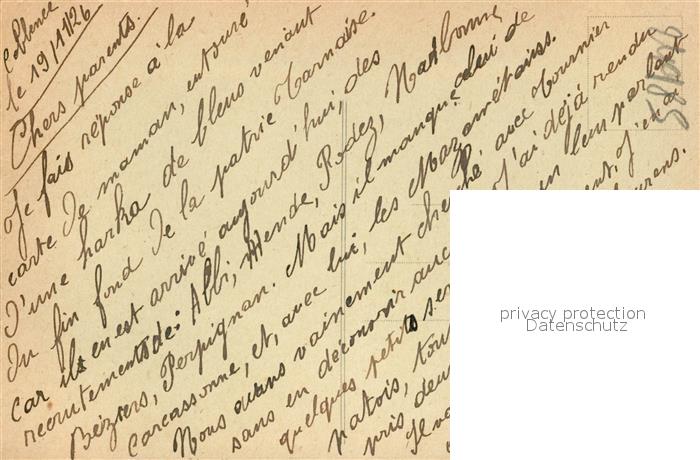 Coblence
le 19/11/26
Chers parents.
Je fais réponse à la
carte de maman, entouré
d'une harka de bleus venant
du fin fond de la patrie Tarnaise.
Car ils en est arrivé aujourd'hui, des
recrutements de: Albi, Mende, Rodez, Narbonne,
Béziers, Perpignan. Mais il manque celui de
Carcassonne, et, avec lui, les Mazamétains.
Nous avons vainement cherché, avec Tournier
sans en découvrir auc J'ai déjà rendu
quelques petits ser en leur parlant
patois, tou ent, j'en a
pris deu urens.
Je va
96985
privacy protection
Datenschutz